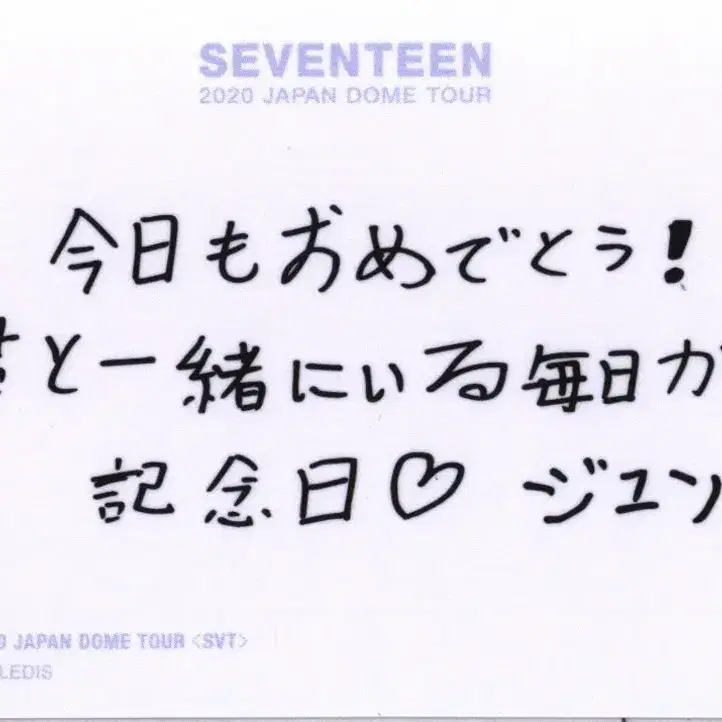 SEVENTEEN
2020 JAPAN DOME TOUR
今日もおめでとう!
と一緒にいる毎日が
記念日♡ ジュン
JAPAN DOME TOUR <SVT>
LEDIS